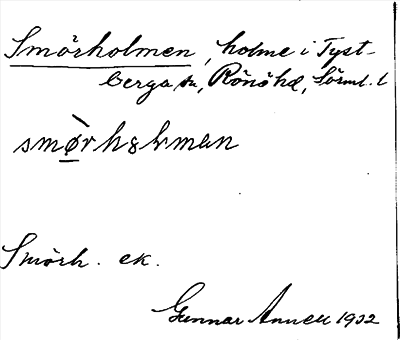 Smörholmen, holme i Tyst-
berga sn, Rönö hd, Sörml. l
smø̀rhɷlman
Smörh. ek.
Gunnar Annell 1932